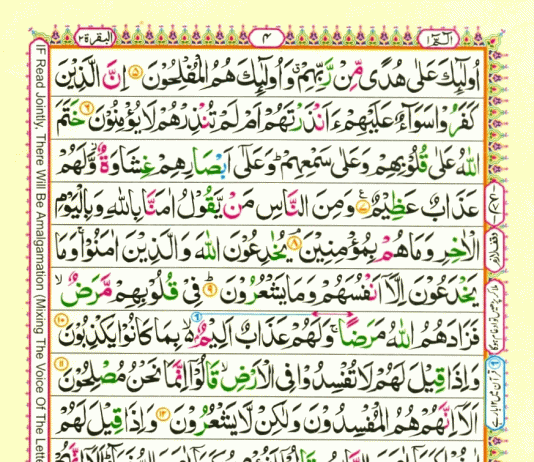 الٓمّٓ ١
٤
البقرة ٢
اُولٰٓئِكَ عَلٰى هُدًى مِّنْ رَّبِّهِمْ ۗ وَاُولٰٓئِكَ هُمُ الْمُفْلِحُوْنَ ۝٥ اِنَّ الَّذِيْنَ
كَفَرُوْا سَوَآءٌ عَلَيْهِمْ ءَاَنْذَرْتَهُمْ اَمْ لَمْ تُنْذِرْهُمْ لَا يُؤْمِنُوْنَ ۝٦ خَتَمَ
اللّٰهُ عَلٰى قُلُوْبِهِمْ وَعَلٰى سَمْعِهِمْ ۗ وَعَلٰٓى اَبْصَارِهِمْ غِشَاوَةٌ وَّلَهُمْ
عَذَابٌ عَظِيْمٌ ۝٧ وَمِنَ النَّاسِ مَنْ يَّقُوْلُ اٰمَنَّا بِاللّٰهِ وَبِالْيَوْمِ
الْاٰخِرِ وَمَا هُمْ بِمُؤْمِنِيْنَ ۝٨ يُخٰدِعُوْنَ اللّٰهَ وَالَّذِيْنَ اٰمَنُوْا ۚ وَمَا
يَخْدَعُوْنَ اِلَّآ اَنْفُسَهُمْ وَمَا يَشْعُرُوْنَ ۝٩ فِيْ قُلُوْبِهِمْ مَّرَضٌ ۙ
فَزَادَهُمُ اللّٰهُ مَرَضًا ۚ وَلَهُمْ عَذَابٌ اَلِيْمٌ ۙ بِمَا كَانُوْا يَكْذِبُوْنَ ۝١٠
وَاِذَا قِيْلَ لَهُمْ لَا تُفْسِدُوْا فِى الْاَرْضِ قَالُوْٓا اِنَّمَا نَحْنُ مُصْلِحُوْنَ ۝١١
اَلَآ اِنَّهُمْ هُمُ الْمُفْسِدُوْنَ وَلٰكِنْ لَّا يَشْعُرُوْنَ ۝١٢ وَاِذَا قِيْلَ لَهُمْ
IF Read Jointly, There Will Be Amalgamation (Mixing The Voice Of The Lette